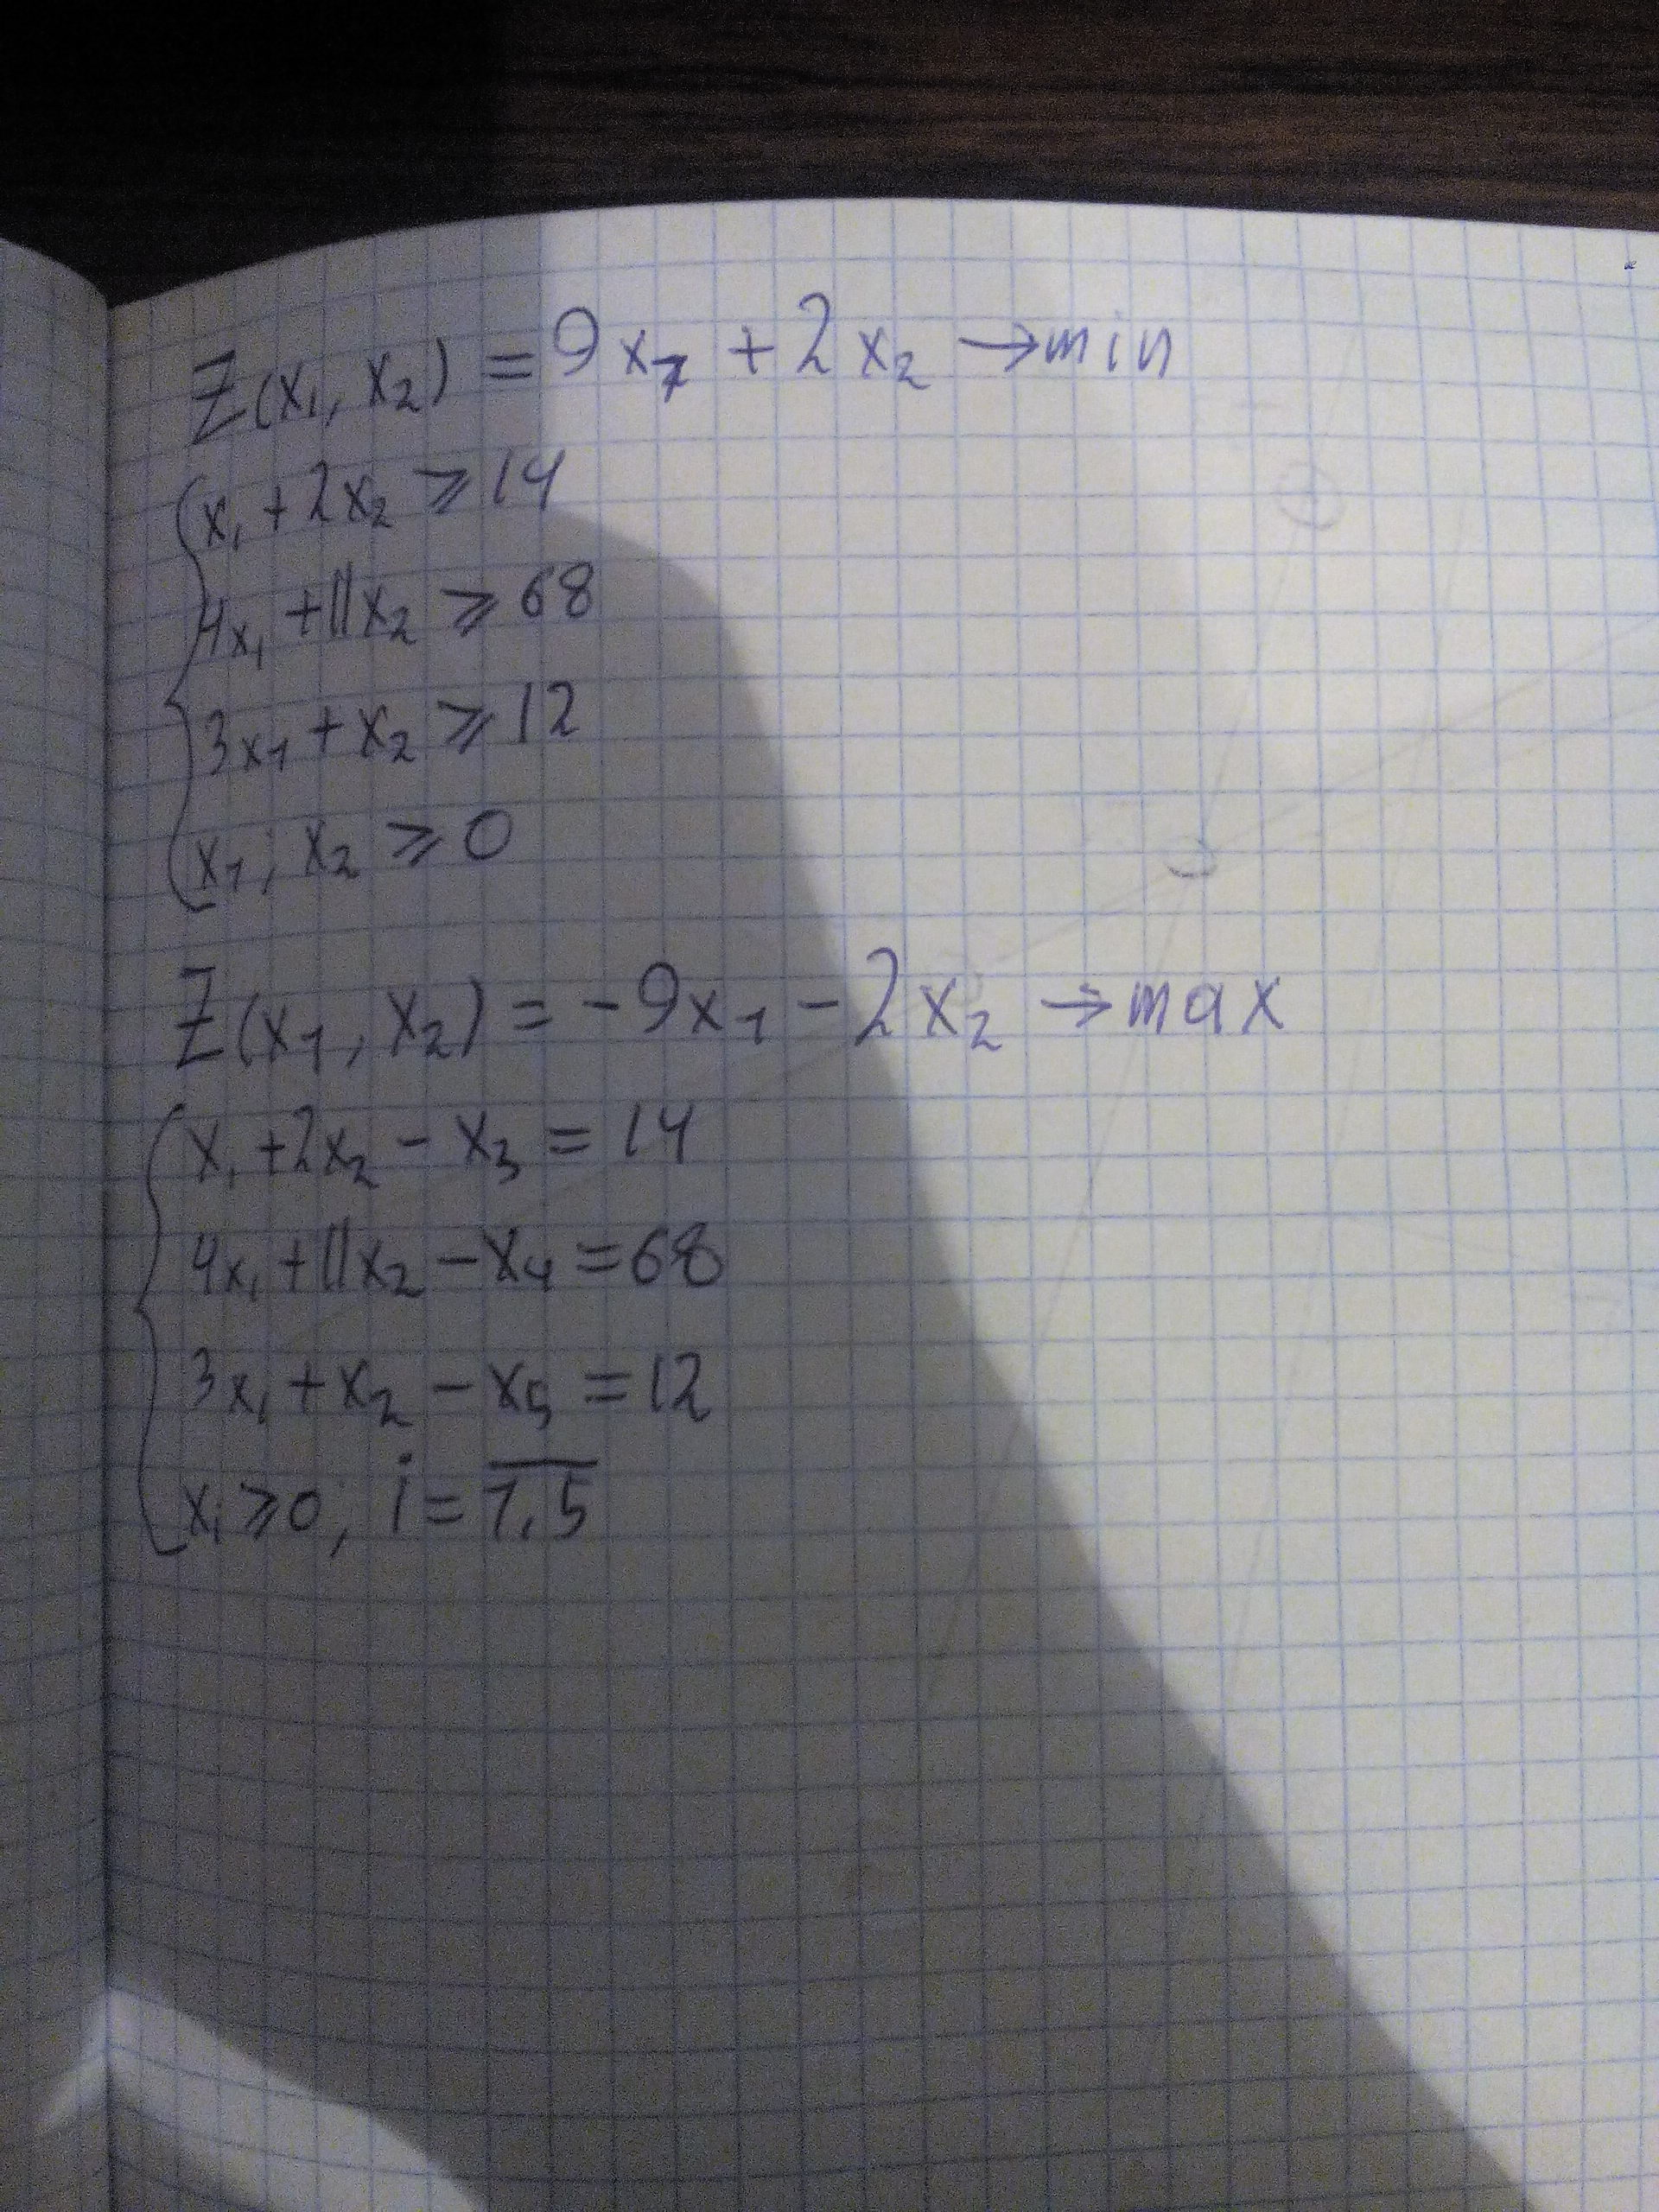 Z(x₁, x₂) = 9x₁ + 2x₂ → min
x₁ + 2x₂ ⩾ 14
4x₁ + 11x₂ ⩾ 68
3x₁ + x₂ ⩾ 12
x₁; x₂ ⩾ 0
Z(x₁, x₂) = -9x₁ - 2x₂ → max
x₁ + 2x₂ - x₃ = 14
4x₁ + 11x₂ - x₄ = 68
3x₁ + x₂ - x₅ = 12
xᵢ ⩾ 0, i = 1̅,̅5̅